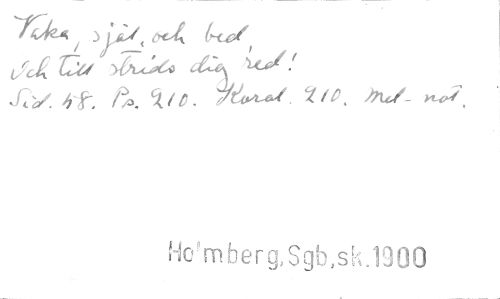 Vaka, själ, och bed
och till strids dig red!
Sid. 58. Ps. 210. Koral. 210. Mel-not.
Holmberg,Sgb,sk.1900